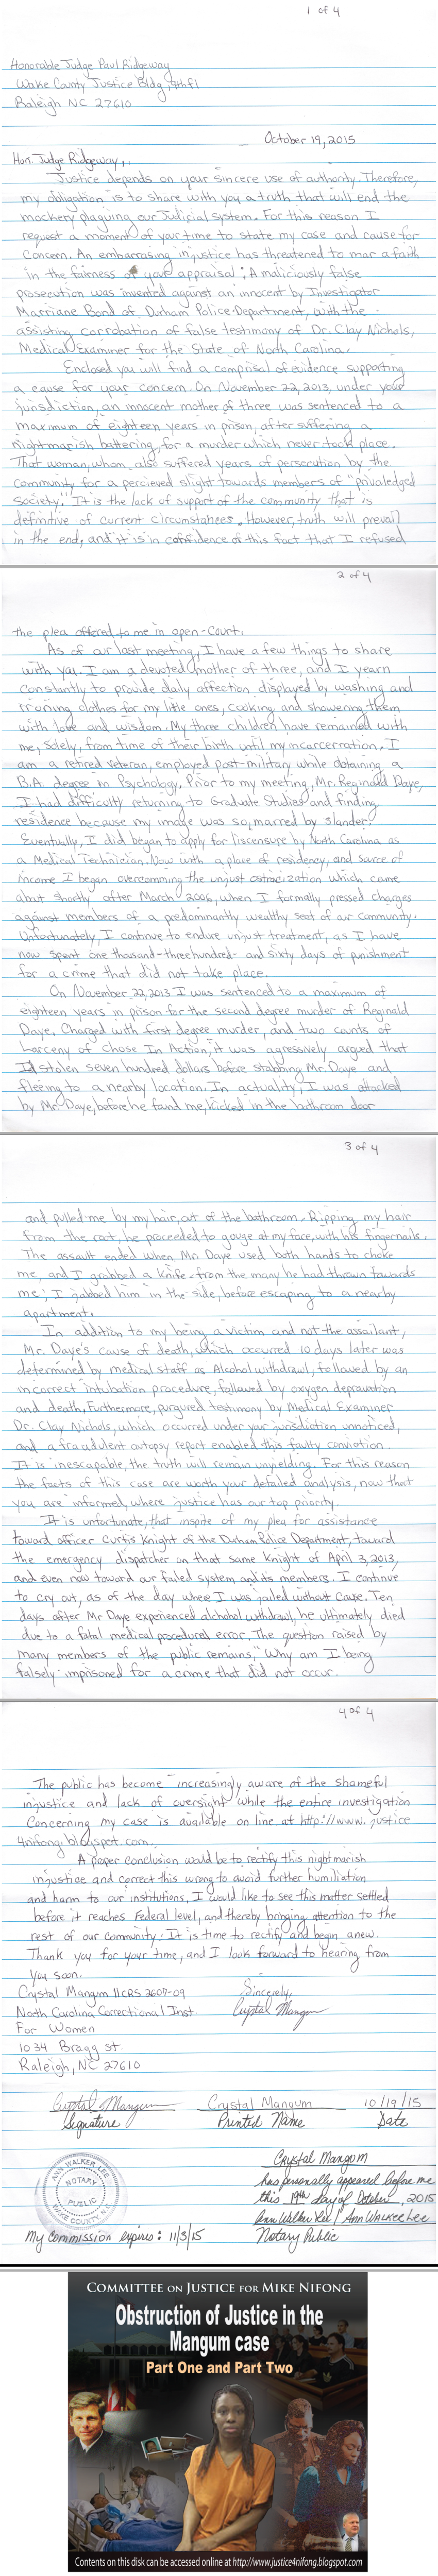 1 of 4
Honorable Judge Paul Ridgeway
Wake County Justice Bldg, 9th fl
Raleigh NC 27610
October 19, 2015
Hon. Judge Ridgeway,
Justice depends on your sincere use of authority. Therefore,
my obligation is to share with you a truth that will end the
mockery plaguing our Judicial system. For this reason I
request a moment of your time to state my case and cause for
Concern. An embarrasing injustice has threatened to mar a faith
in the fairness of your appraisal: A maliciously false
prosecution was invented against an innocent by Investigator
Marriane Bond of Durham Police Department, with the
assisting corrobation of false testimony of Dr. Clay Nichols,
Medical Examiner for the State of North Carolina.
Enclosed you will find a comprisal of evidence supporting
a cause for your concern. On November 22, 2013, under your
jurisdiction, an innocent mother of three was sentenced to a
maximum of eighteen years in prison, after suffering a
nightmarish battering, for a murder which never took place.
That woman, whom, also suffered years of persecution by the
community for a percieved slight towards members of "privaledged
Society." It is the lack of support of the community that is
definitive of current circumstances. However, truth will prevail
in the end, and it is in confidence of this fact that I refused
2 of 4
the plea offered to me in open-court.
As of our last meeting, I have a few things to share
with you. I am a devoted mother of three, and I yearn
constantly to provide daily affection, displayed by washing and
ironing clothes for my little ones, cooking and showering them
with love and wisdom. My three children have remained with
me, Solely, from time of their birth until my incarcerration. I
am a retired veteran, employed post-military while obtaining a
B.A. degree in Psychology. Prior to my meeting, Mr. Reginald Daye,
I had difficulty returning to Graduate Studies and finding
residence because my image was so marred by slander.
Eventually, I did began to apply for liscensure by North Carolina as
a Medical Technician. Now with a place of residency, and source of
income I began overcomming the unjust ostracization which came
about shortly after March 2006, when I formally pressed charges
against members of a predominantly wealthy seat of our Community.
Unfortunately, I continue to endure unjust treatment, as I have
now spent one thousand-three hundred-and sixty days of punishment
for a crime that did not take place.
On November 22, 2013 I was sentenced to a maximum of
eighteen years in prison for the second degree murder of Reginald
Daye. Charged with first degree murder, and two counts of
Larceny of Chose In Action, it was agressively argued that
I'd stolen seven hundred dollars before stabbing Mr. Daye and
fleeing to a nearby location. In actuality, I was attacked
by Mr. Daye, before he found me, kicked in the bathroom door
3 of 4
and pulled me by my hair, out of the bathroom. Ripping my hair
from the root, he proceeded to gouge at my face, with his fingernails.
The assault ended when Mr. Daye used both hands to choke
me, and I grabbed a knife-from the many he had thrown towards
me; I jabbed him in the side, before escaping to a nearby
apartment.
In addition to my being a victim and not the assailant,
Mr. Daye's cause of death, which occurred 10 days later was
determined by medical staff as Alcohol withdrawl, followed by an
incorrect intubation procedure, followed by oxygen depravation
and death. Furthermore, purgured testimony by Medical Examiner
Dr. Clay Nichols, which occurred under your jurisdiction unnoticed,
and a fraudulent autopsy report enabled this faulty conviction.
It is inescapable, the truth will remain unyielding. For this reason
the facts of this case are worth your detailed analysis, now that
you are informed, where justice has our top priority.
It is unfortunate, that inspite of my plea for assistance
toward officer Curtis Knight of the Durham Police Department, toward
the emergency dispatcher on that same Knight of April 3, 2013,
and even now toward our failed system and its members. I continue
to cry out, as of the day where I was jailed without Cause. Ten
days after Mr Daye experienced alchohol withdrawl, he ultimately died
due to a fatal medical procedural error. The question raised by
many members of the public remains, "Why am I being
falsely imprisoned for a crime that did not occur.
4 of 4
The public has become increasingly aware of the shameful
injustice and lack of oversight while the entire investigation
Concerning my case is available on line at http://www.justice
4nifong.blogspot.com.
A proper conclusion would be to rectify this nightmarish
injustice and correct this wrong to avoid further humiliation
and harm to our institutions. I would like to see this matter settled
before it reaches Federal level, and thereby bringing attention to the
rest of our community. It is time to rectify and begin anew.
Thank you for your time, and I look forward to hearing from
you soon.
Crystal Mangum 11CRS 2607-09
Sincerely,
North Carolina Correctional Inst.
Crystal Mangum
For Women
1034 Bragg st.
Raleigh, NC 27610
Crystal Mangum Crystal Mangum 10/19/15
Signature Printed Name Date
Crystal Mangum
has personally appeared before me
this 19th day of October, 2015
Ann Walker Lee / Ann Walker Lee
Notary Public
ANN WALKER LEE
NOTARY
PUBLIC
WAKE COUNTY, N.C.
My Commission expires: 11/3/15
COMMITTEE ON JUSTICE FOR MIKE NIFONG
Obstruction of Justice in the
Mangum case
Part One and Part Two
Contents on this disk can be accessed online at http://www.justice4nifong.blogspot.com